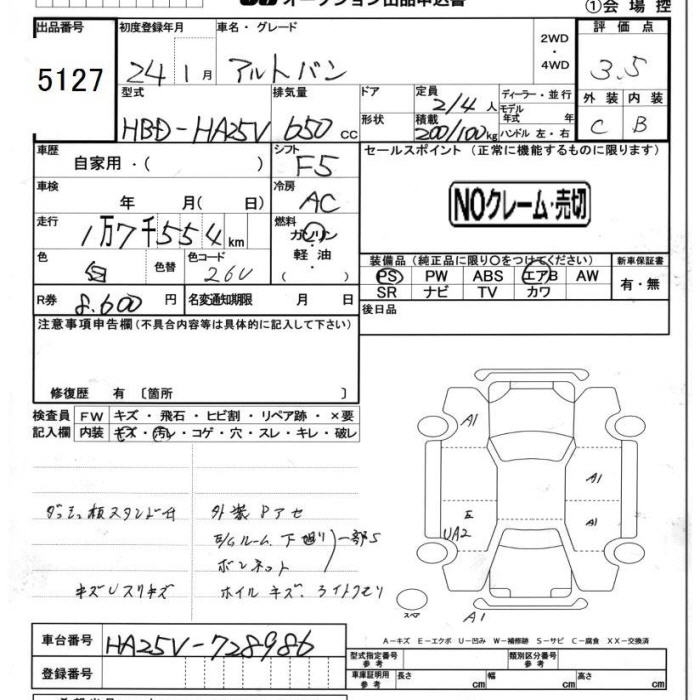 オークション出品申込書
①会場控
出品番号
5127
初度登録年月
24 1月
車名・グレード
アルトバン
2WD・4WD
評価点
3.5
外装 内装
C B
型式
HBD-HA25V
排気量
650cc
ドア
形状
定員
2/4人
積載
200/100kg
ディーラー・並行
モデル年式 年
ハンドル 左・右
車歴
自家用・( )
シフト
F5
セールスポイント(正常に機能するものに限ります)
NOクレーム・売切
車検
年 月(日)
冷房
AC
走行
1万7千554km
燃料
ガソリン・軽油・( )
色
白
色替
色コード
26U
装備品(純正品に限り○をつけてください)
PS PW ABS エアB AW
SR ナビ TV カワ
新車保証書
有・無
R券
8.600円
名変通知期限 月 日
後日品
注意事項申告欄(不具合内容等は具体的に記入して下さい)
修復歴 有〔箇所 〕
検査員記入欄
FW キズ・飛石・ヒビ割・リペア跡・×要
内装 キズ・汚レ・コゲ・穴・スレ・キレ・破レ
ダッシュ板スタンド付
キズUスリキズ
外装Pアセ
E/Gルーム、下廻り
一部S
ボンネット
ホイルキズ、ライトクモリ
A1
A1
A1
E
UA2
スペア
A1
A-キズ E-エクボ U-凹み W-補修跡 S-サビ C-腐食 XX-交換済
車台番号
HA25V-728986
登録番号
型式指定番号
参考
類別区分番号
参考
車庫証明用
参考
長さ cm 幅 cm 高さ cm